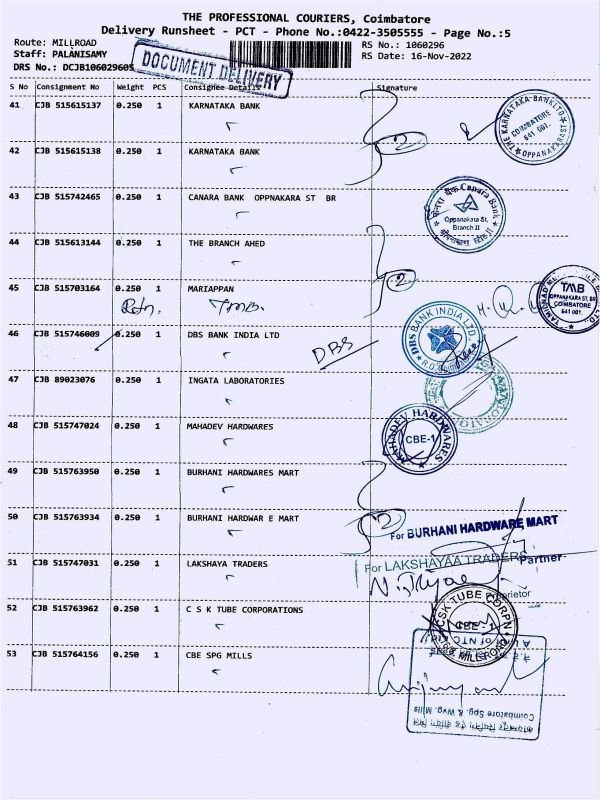 THE PROFESSIONAL COURIERS, Coimbatore
Delivery Runsheet - PCT - Phone No.:0422-3505555 - Page No.:5
Route: MILLROAD
RS No.: 1060296
Staff: PALANISAMY
RS Date: 16-Nov-2022
DRS No.: DCJB106029605
DOCUMENT DELIVERY
S No Consignment No Weight PCS Consignee Details Signature
41 CJB 515615137 0.250 1 KARNATAKA BANK
THE KARNATAKA BANK LTD
COIMBATORE
641 001.
OPPANAKARA ST
2
42 CJB 515615138 0.250 1 KARNATAKA BANK
43 CJB 515742465 0.250 1 CANARA BANK OPPNAKARA ST BR
केनरा बैंक Canara Bank
Oppanakara St.
Branch II
44 CJB 515613144 0.250 1 THE BRANCH AHED
2
45 CJB 515703164 0.250 1 MARIAPPAN
TMB
OPPANAKARA ST. BR
COIMBATORE
641 001.
Rdn. TMB.
46 CJB 515746009 0.250 1 DBS BANK INDIA LTD
DBS
DBS BANK INDIA LTD.
47 CJB 89023076 0.250 1 INGATA LABORATORIES
48 CJB 515747024 0.250 1 MAHADEV HARDWARES
MAHADEV HARDWARES
CBE-1
49 CJB 515763950 0.250 1 BURHANI HARDWARES MART
50 CJB 515763934 0.250 1 BURHANI HARDWAR E MART
2
For BURHANI HARDWARE MART
Partner
51 CJB 515747031 0.250 1 LAKSHAYA TRADERS
For LAKSHAYAA TRADERS
Proprietor
52 CJB 515763962 0.250 1 C S K TUBE CORPORATIONS
CSK TUBE CORPN
CBE - 1
MILLROAD
53 CJB 515764156 0.250 1 CBE SPG MILLS
Coimbatore Spg. & Wvg. Mills